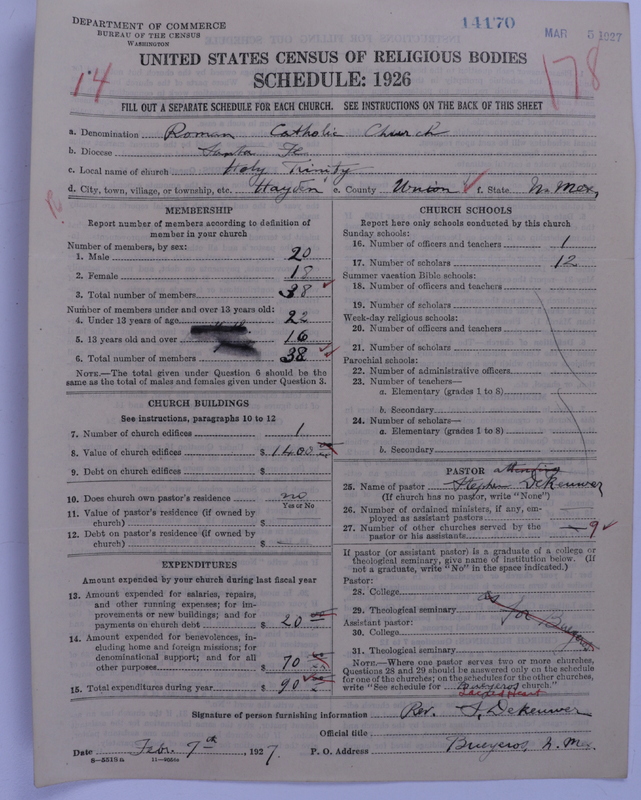 DEPARTMENT OF COMMERCE
BUREAU OF THE CENSUS
WASHINGTON
14170
MAR 5 1927
UNITED STATES CENSUS OF RELIGIOUS BODIES
SCHEDULE: 1926
14
178
FILL OUT A SEPARATE SCHEDULE FOR EACH CHURCH. SEE INSTRUCTIONS ON THE BACK OF THIS SHEET
a. Denomination Roman Catholic Church
b. Diocese Santa Fe
c. Local name of church Holy Trinity
d. City, town, village, or township, etc. Hayden e. County Union f. State N. Mex,
MEMBERSHIP
Report number of members according to definition of
member in your church
Number of members, by sex:
1. Male 20
2. Female 18
3. Total number of members 38
Number of members under and over 13 years old:
4. Under 13 years of age 22
5. 13 years old and over 16
6. Total number of members 38
NOTE.—The total given under Question 6 should be the
same as the total of males and females given under Question 3.
CHURCH BUILDINGS
See instructions, paragraphs 10 to 12
7. Number of church edifices 1
8. Value of church edifices $ 1400
9. Debt on church edifices $
10. Does church own pastor's residence no
Yes or No
11. Value of pastor's residence (if owned by
church) $
12. Debt on pastor's residence (if owned by
church) $
EXPENDITURES
Amount expended by your church during last fiscal year
13. Amount expended for salaries, repairs,
and other running expenses; for im-
provements or new buildings; and for
payments on church debt $ 20
14. Amount expended for benevolences, in-
cluding home and foreign missions; for
denominational support; and for all
other purposes $ 70
15. Total expenditures during year $ 90
CHURCH SCHOOLS
Report here only schools conducted by this church
Sunday schools:
16. Number of officers and teachers 1
17. Number of scholars 12
Summer vacation Bible schools:
18. Number of officers and teachers
19. Number of scholars
Week-day religious schools:
20. Number of officers and teachers
21. Number of scholars
Parochial schools:
22. Number of administrative officers
23. Number of teachers—
a. Elementary (grades 1 to 8)
b. Secondary
24. Number of scholars—
a. Elementary (grades 1 to 8)
b. Secondary
PASTOR attending
25. Name of pastor Stephen Dekeuwer
(If church has no pastor, write "None")
26. Number of ordained ministers, if any, em-
ployed as assistant pastors
27. Number of other churches served by the
pastor or his assistants 9
If pastor (or assistant pastor) is a graduate of a college or
theological seminary, give name of institution below. (If
not a graduate, write "No" in the space indicated.)
Pastor:
28. College
29. Theological seminary as for Bueyeros
Assistant pastor:
30. College
31. Theological seminary
NOTE.—Where one pastor serves two or more churches,
Questions 28 and 29 should be answered only on the schedule
for one of the churches; on the schedules for the other churches,
write "See schedule for Bueyeros church."
Sacred Heart
Signature of person furnishing information Rev. S. Dekeuwer
Official title
Date Febr. 7th, 1927 P. O. Address Bueyeros, N. Mex.
8—5518a 11—9066a